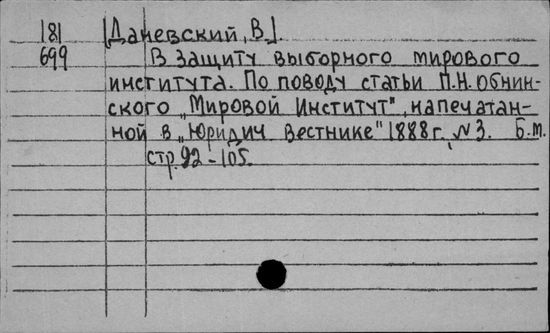 181 [Даневский, В.].
699 В защиту выборного мирового
института. По поводу статьи П.Н. Обнин-
ского „Мировой Институт", напечатан-
ной в „Юридич Вестнике" 1888 г., N 3. Б.м.
стр. 92-105.